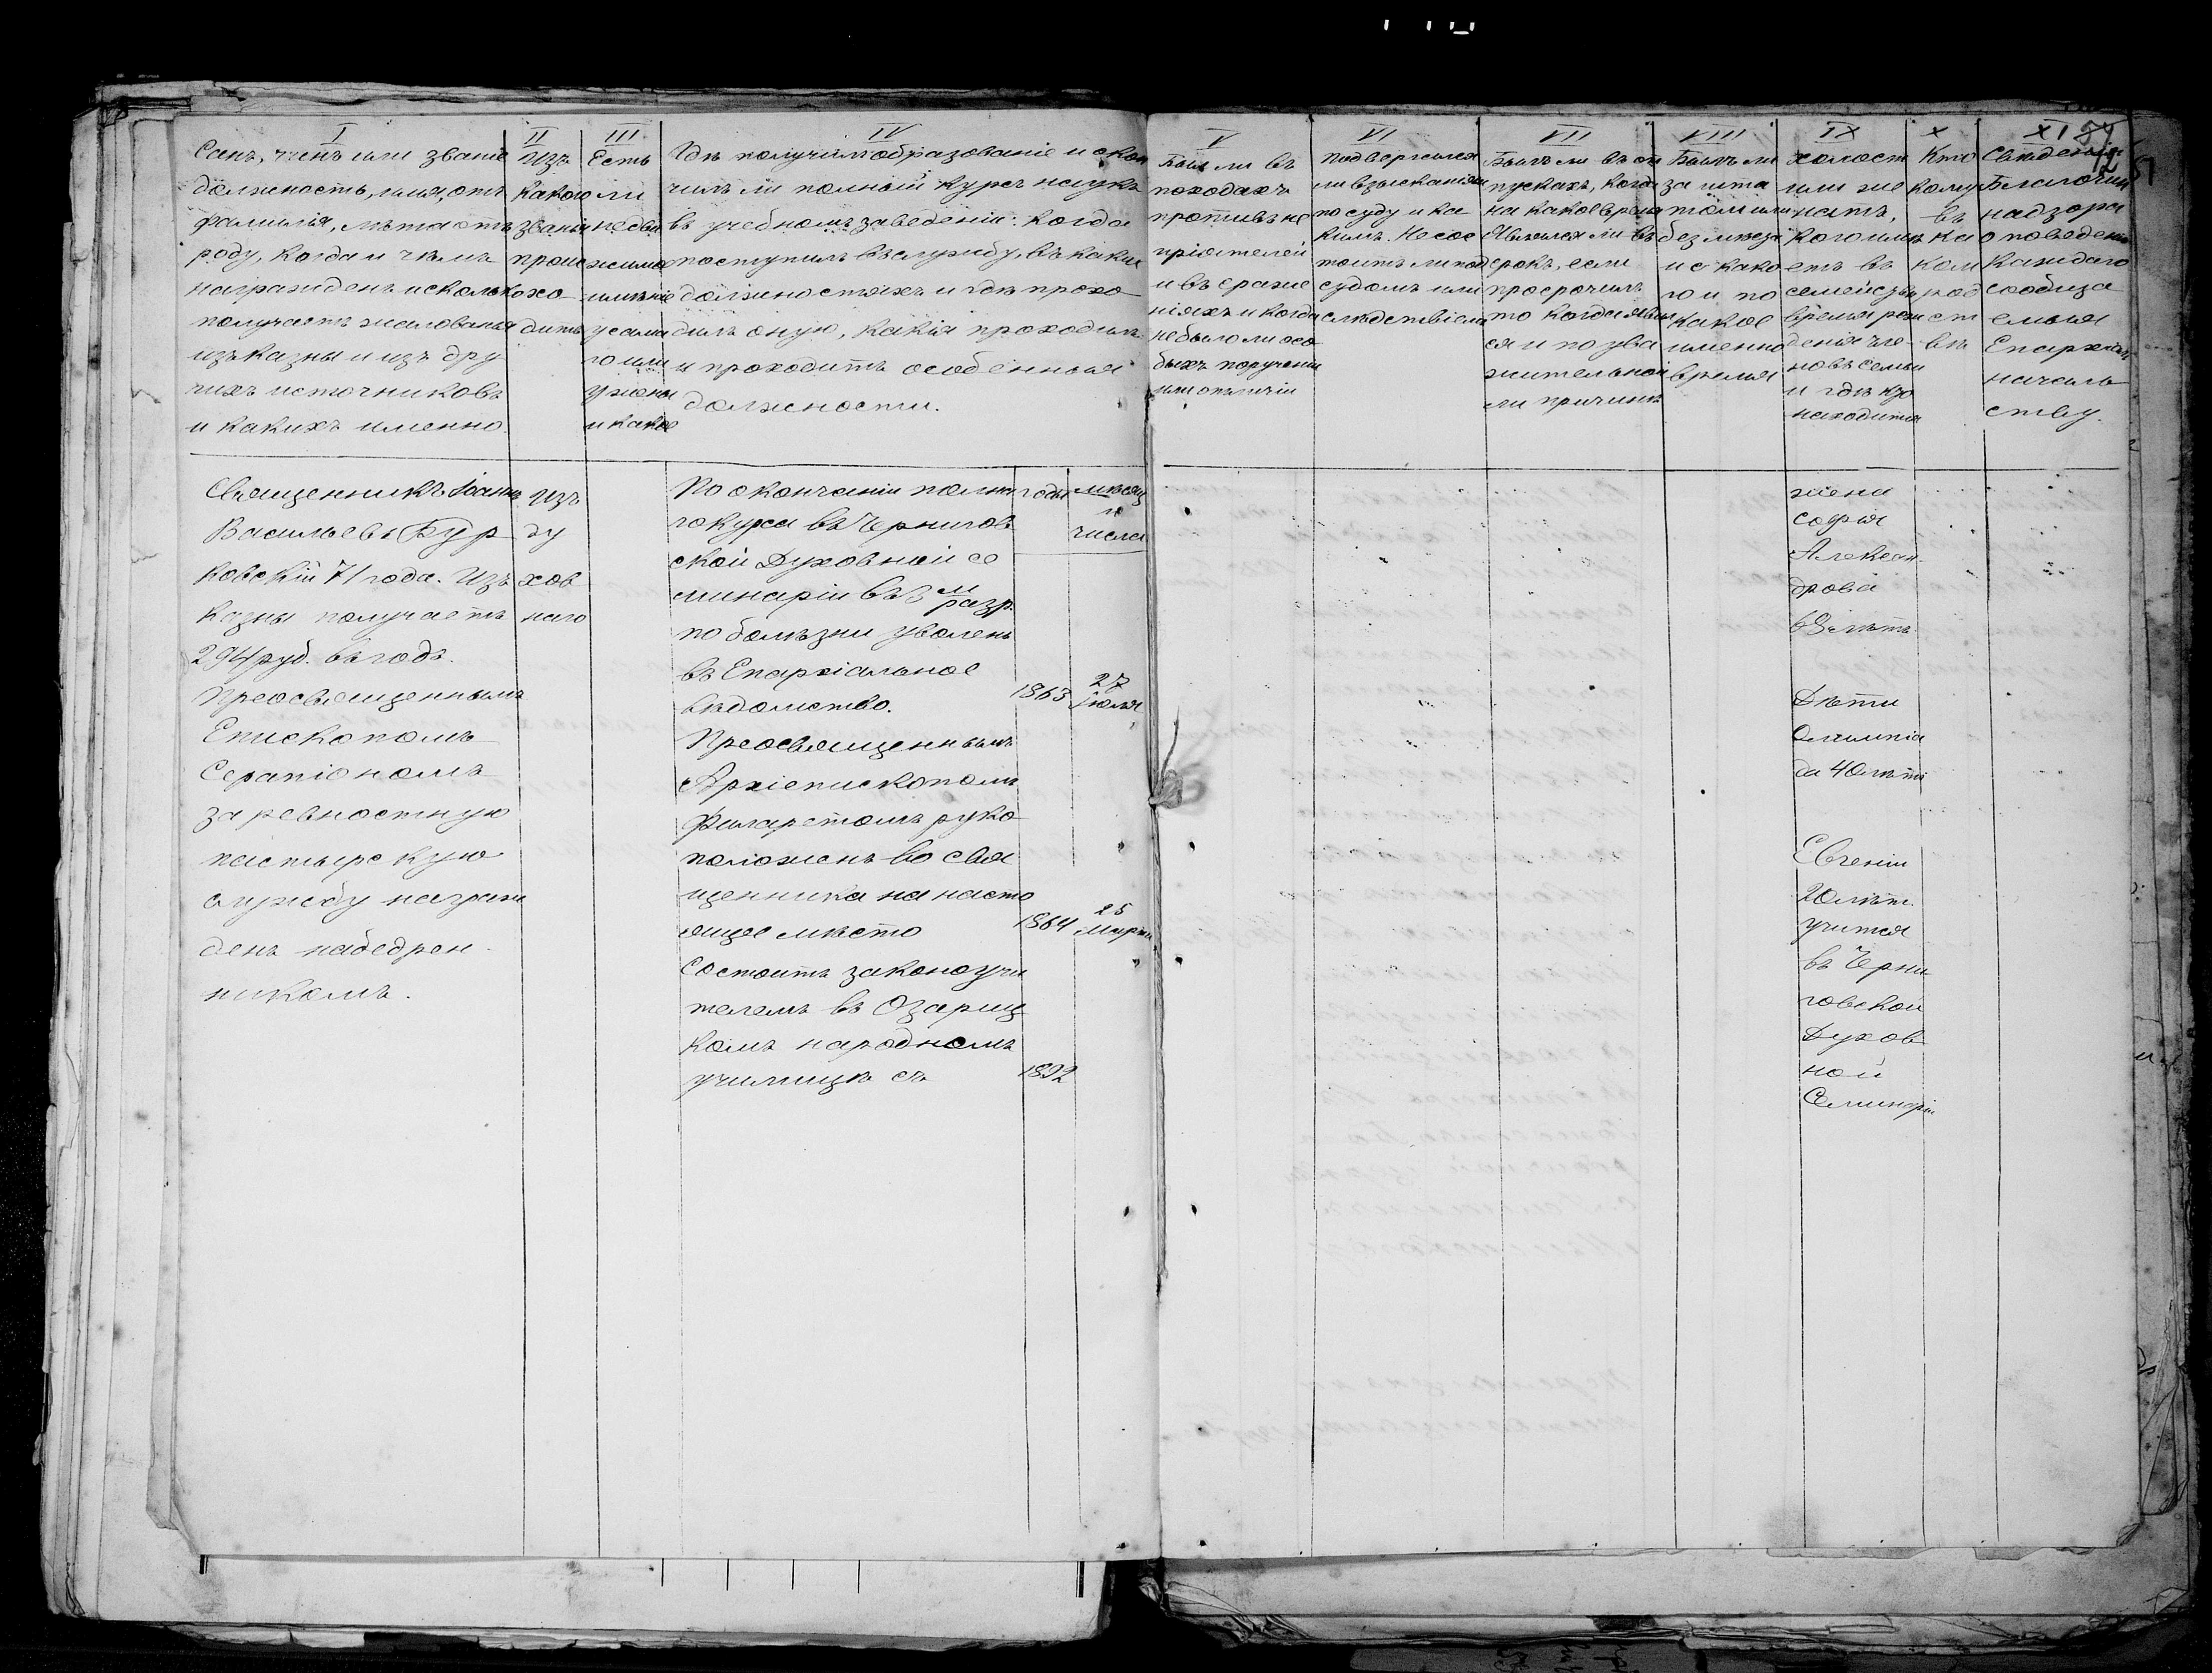 I
Санъ, чинъ или званіе
должность, имя, отч
фамилія, лѣта отъ
роду, когда и чѣмъ
награжденъ и сколько
получаетъ жалованья
изъ казны и изъ дру
гихъ источниковъ
и какихъ именно.
II
Изъ
какого
званія
проис
хо
дитъ
III
Есть
ли
недви
жимое
имѣніе
у само
го или
у жены
и какое
IV
Гдѣ получилъ образованіе и окон
чилъ ли полный курсъ наукъ
въ учебномъ заведеніи: когда
поступилъ въ службу, въ какихъ
должностяхъ и гдѣ прохо
дилъ оную, какія проходилъ
и проходитъ особенныя
должности.
V
Былъ ли въ
походахъ
противъ не
пріятелей
и въ сраже
ніяхъ и когда
не было ли осо
быхъ порученій
или отличій
VI
Подвергался
ли взысканіямъ
по суду и ка
кимъ. Не сос
тоитъ ли подъ
судомъ или
слѣдствіемъ
VII
Былъ ли въ от
пускахъ, когда
на какое время
Явился ли въ
срокъ, если
просрочилъ
то когда явил
ся и по ува
жительной
ли причинѣ
VIII
Былъ ли
за шта
томъ или
безъ мѣста
и съ како
го и по
какое
именно
время
IX
Холостъ
или же
натъ,
кого имѣ
етъ въ
семействѣ
время рож
денія чле-
новъ семьи
и гдѣ кто
находится
X
Кто
кому
въ
ка
комъ
род
ст
вѣ
XI
54
12
51
Свѣденія
Благочин
надзора
о поведеніи
каждаго
сообща
емыя
Епархіаль
началь
ству.
Священникъ Іоаннъ
Васильевъ Бур
ковскій 71 года. Изъ
казны получаетъ
294 руб. въ годъ.
Преосвященнымъ
Епископомъ
Серапіономъ
за ревностную
пастырскую
службу награж
денъ набедрен-
никомъ.
Изъ
ду
хов
наго
По окончаніи полна
го курса въ Чернигов
ской Духовной Се
минаріи въ 3 м разр.
по болѣзни уволенъ
въ Епархіальное
вѣдомство.
Преосвященнымъ
Архіепископомъ
Филаретомъ руко
положенъ во свя
щенника на насто
ящее мѣсто
Состоитъ законоучи
телемъ въ Озариц
комъ народномъ
училищѣ съ
годы
мѣсяц
и
числа
1863
27
Іюля
1864
25
Марта
1892
жена
Софія
Алексан-
дрова
68 лѣтъ
Дѣти
Олимпіа
да 40 лѣтъ
Евгеній
20 лѣт.
учится
въ Черни
говской
Духов
ной
Семинаріи